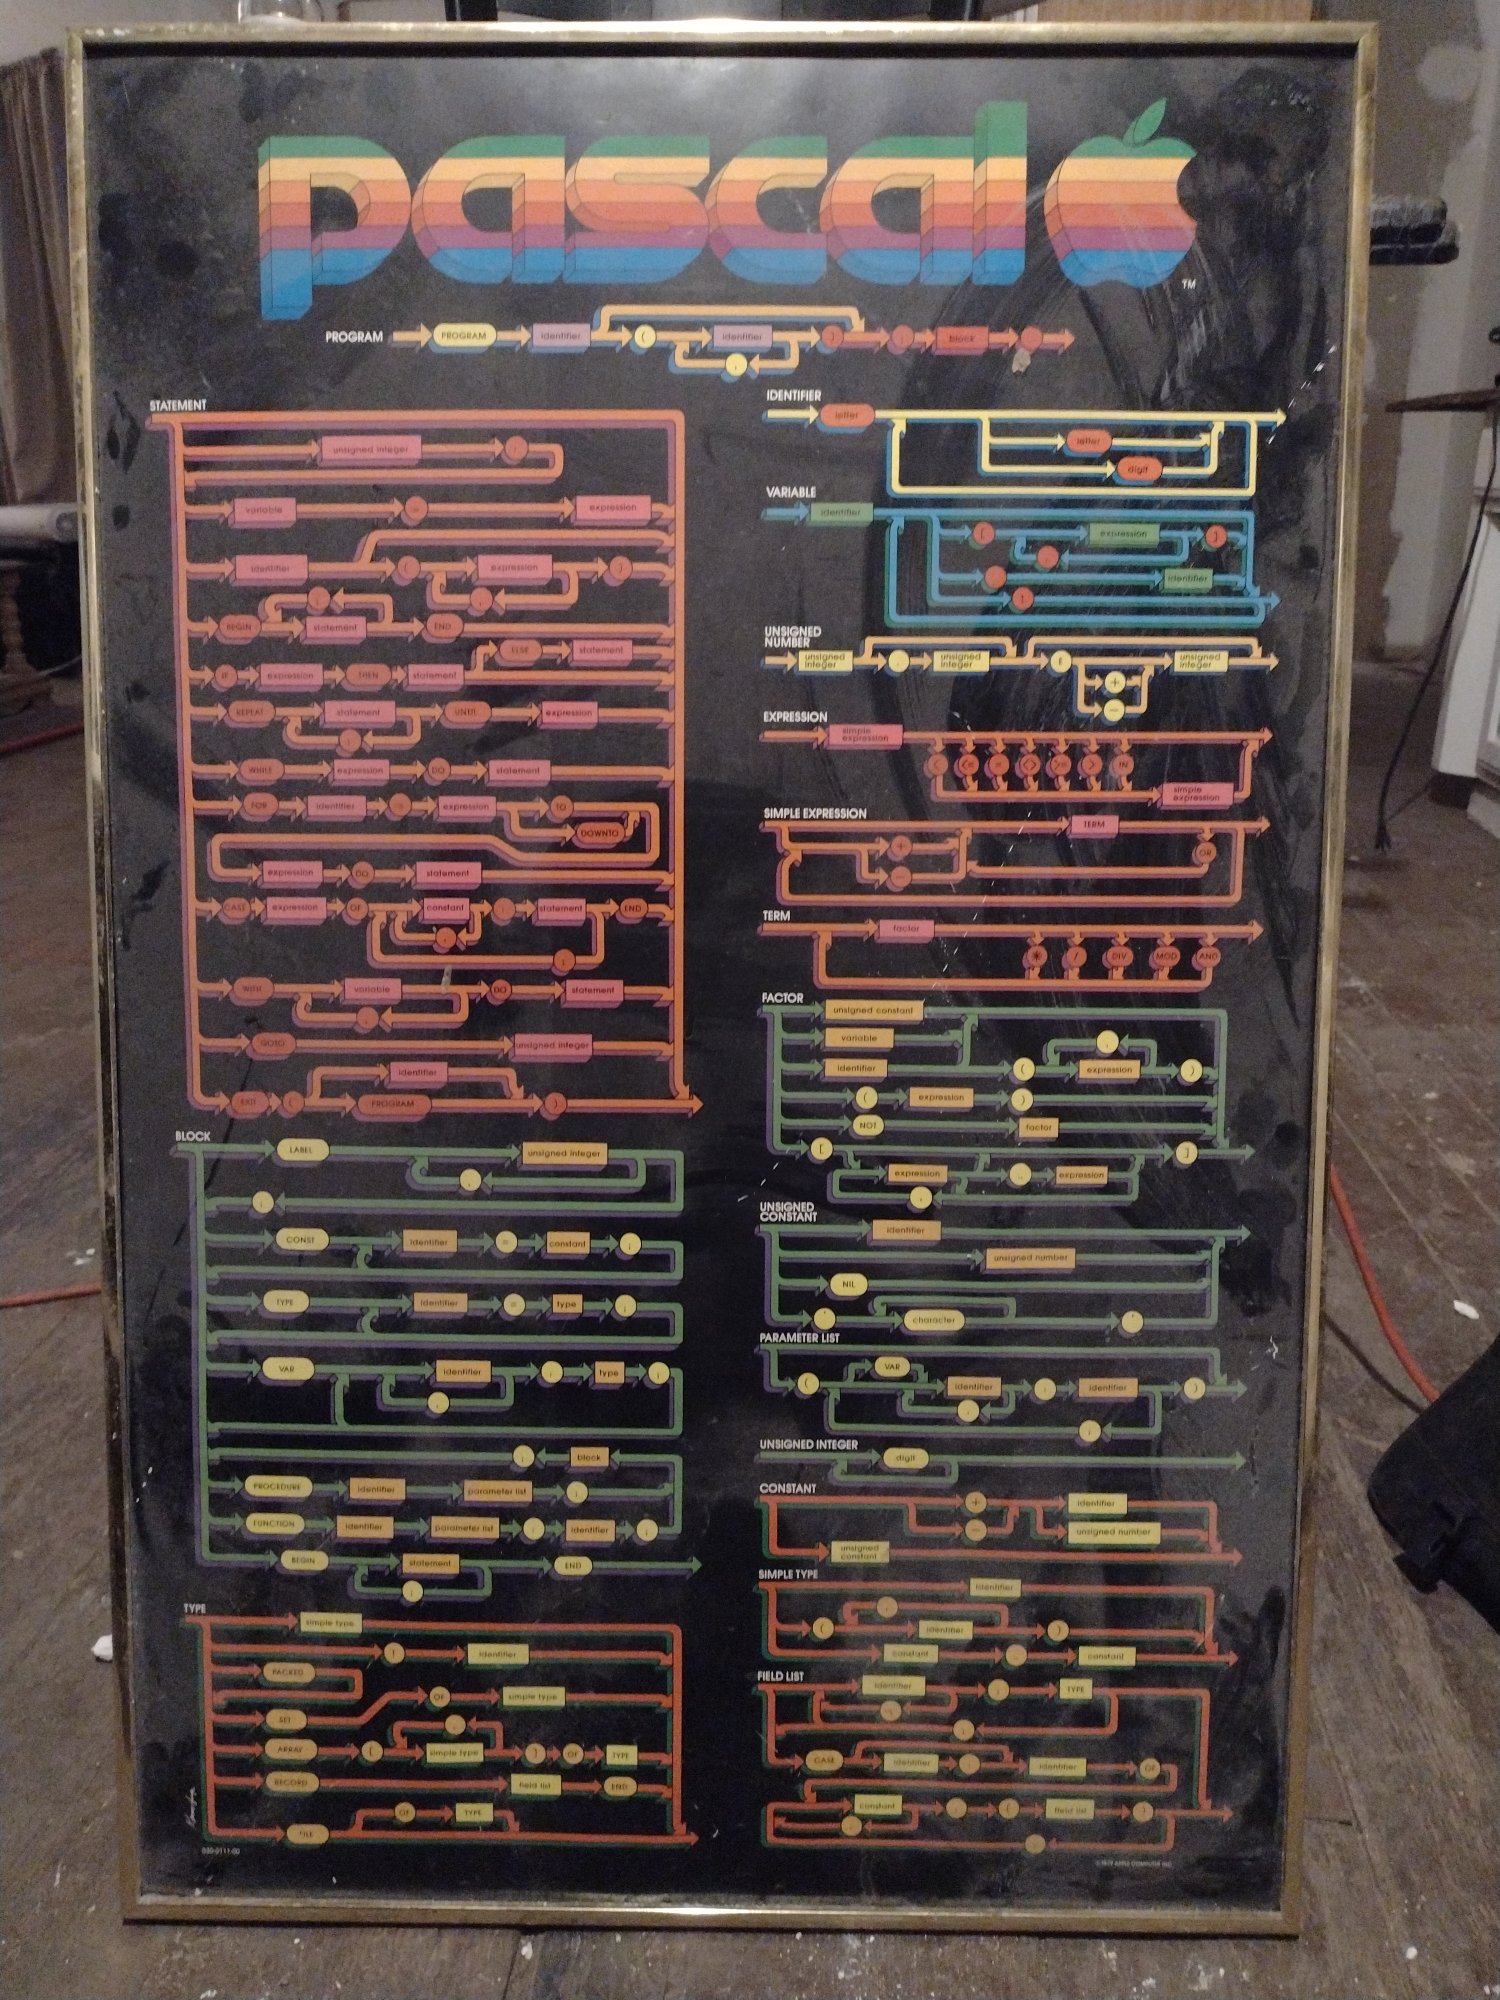 pascal
TM
PROGRAM PROGRAM identifier ( identifier ) ; block
,
STATEMENT
unsigned integer :
variable expression
identifier ( expression )
,
;
BEGIN statement END
ELSE statement
IF expression THEN statement
REPEAT statement UNTIL expression
;
WHILE expression DO statement
FOR identifier expression TO
DOWNTO
expression DO statement
CASE expression OF constant : statement END
,
;
WITH variable DO statement
,
GOTO unsigned integer
identifier
EXIT ( PROGRAM )
BLOCK
LABEL unsigned integer
,
;
CONST identifier = constant ;
TYPE identifier = type ;
VAR identifier : type ;
,
; block
PROCEDURE identifier parameter list ;
FUNCTION identifier parameter list : identifier ;
BEGIN statement END
;
TYPE
simple type
identifier
PACKED
SET OF simple type
,
ARRAY [ simple type ] OF TYPE
RECORD field list END
OF TYPE
FILE
030-0111-00
IDENTIFIER
letter
letter
digit
VARIABLE
identifier
[ expression ]
,
identifier
UNSIGNED
NUMBER
unsigned integer . unsigned integer E unsigned integer
+
−
EXPRESSION
simple expression
< <= = <> >= > IN
simple expression
SIMPLE EXPRESSION
TERM
+ OR
−
TERM
factor
* / DIV MOD AND
FACTOR
unsigned constant
variable
,
identifier ( expression )
( expression )
NOT factor
[ ]
expression expression
,
UNSIGNED
CONSTANT
identifier
unsigned number
NIL
' character '
PARAMETER LIST
VAR
( identifier : identifier )
,
;
UNSIGNED INTEGER
digit
CONSTANT
+ identifier
− unsigned number
unsigned constant
SIMPLE TYPE
identifier
,
( identifier )
constant constant
FIELD LIST
identifier : TYPE
,
;
CASE identifier : identifier OF
constant : ( field list )
,
;
©1979 APPLE COMPUTER INC.